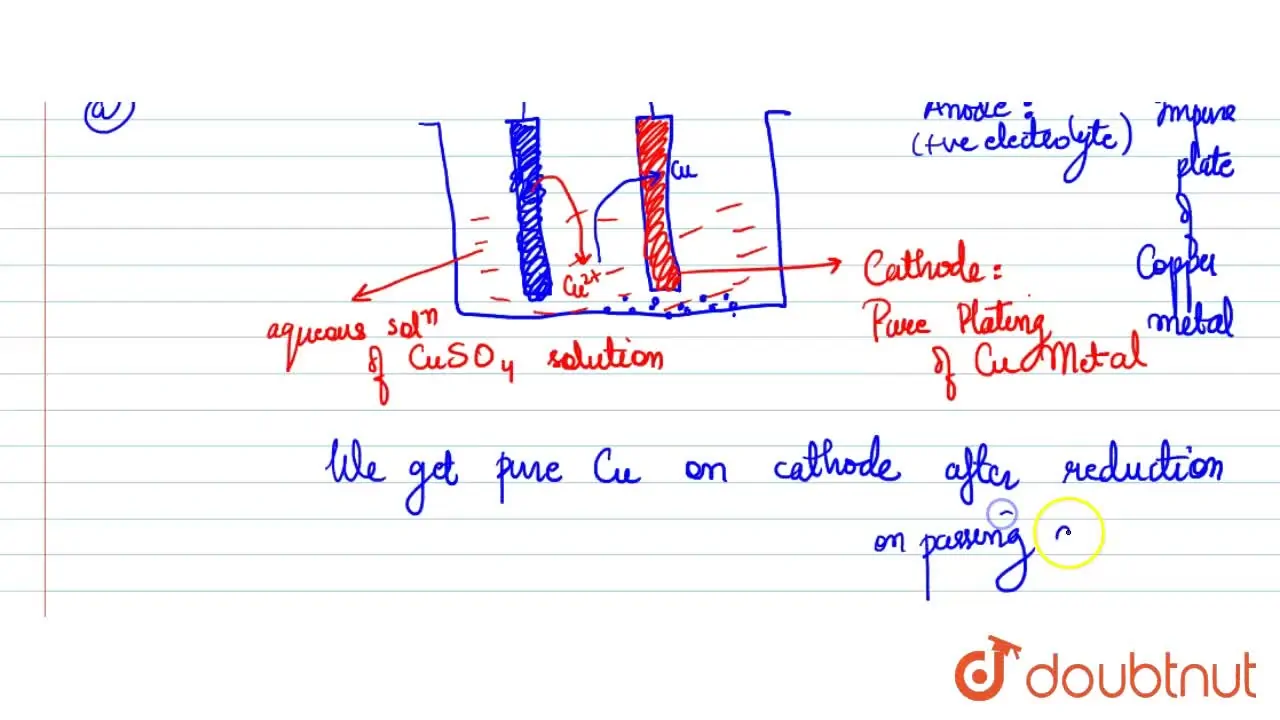 (a)
Anode :
(+ve electrolyte)
Impure
plate
of
Copper
metal
Cu
Cu2+
aqueous solⁿ
of CuSO4 solution
Cathode :
Pure Plating
of Cu Metal
We get pure Cu on cathode after reduction
on passing
doubtnut